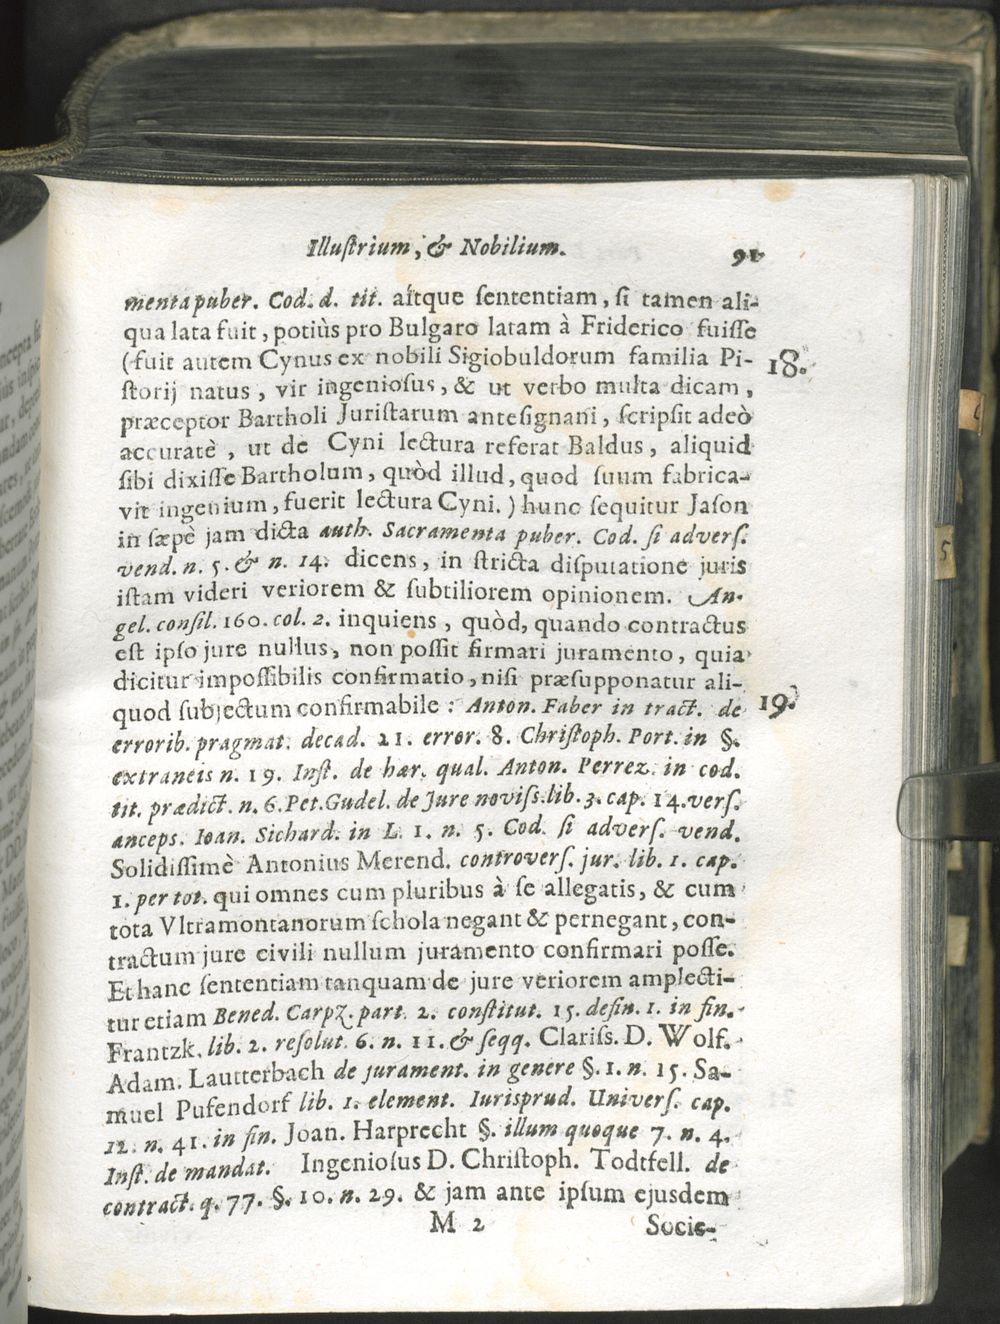 Illuſtrium, & Nobilium. 91
menta puber. Cod. d. tit. aitque ſententiam, ſi tamen ali-
qua lata fuit, potiùs pro Bulgaro latam à Friderico fuiſſe
(fuit autem Cynus ex nobili Sigiobuldorum familia Pi- 18.
ſtorij natus, vir ingenioſus, & ut verbo multa dicam,
præceptor Bartholi Juriſtarum anteſignani, ſcripſit adeò
accuratè, ut de Cyni lectura referat Baldus, aliquid
ſibi dixiſſe Bartholum, quòd illud, quod ſuum fabrica-
vit ingenium, fuerit lectura Cyni.) hunc ſequitur Jaſon
in ſæpè jam dicta auth. Sacramenta puber. Cod. ſi adverſ.
vend. n. 5. & n. 14. dicens, in ſtricta diſputatione juris
iſtam videri veriorem & ſubtiliorem opinionem. An-
gel. conſil. 160. col. 2. inquiens, quòd, quando contractus
eſt ipſo jure nullus, non poſſit firmari juramento, quia
dicitur impoſſibilis confirmatio, niſi præſupponatur ali-
quod ſubjectum confirmabile: Anton. Faber in tract. de 19.
errorib. pragmat. decad. 21. error. 8. Chriſtoph. Port. in §.
extraneis n. 19. Inſt. de hær. qual. Anton. Perrez. in cod.
tit. prædict. n. 6. Pet. Gudel. de Jure noviſs. lib. 3. cap. 14. verſ.
anceps. Ioan. Sichard. in L. 1. n. 5. Cod. ſi adverſ. vend.
Solidiſſimè Antonius Merend. controverſ. jur. lib. 1. cap.
1. per tot. qui omnes cum pluribus à ſe allegatis, & cum
tota Vltramontanorum ſchola negant & pernegant, con-
tractum jure civili nullum juramento confirmari poſſe.
Et hanc ſententiam tanquam de jure veriorem amplecti-
tur etiam Bened. Carpz. part. 2. conſtitut. 15. defin. 1. in fin.
Frantzk. lib. 2. reſolut. 6. n. 11. & ſeqq. Clariſs. D. Wolf.
Adam. Lautterbach de jurament. in genere §. 1. n. 15. Sa-
muel Pufendorf lib. 1. element. Iurisprud. Univerſ. cap.
12. n. 41. in fin. Joan. Harprecht §. illum quoque 7. n. 4.
Inſt. de mandat. Ingenioſus D. Chriſtoph. Todtfell. de
contract. q. 77. §. 10. n. 29. & jam ante ipſum ejusdem
M 2 Socie-